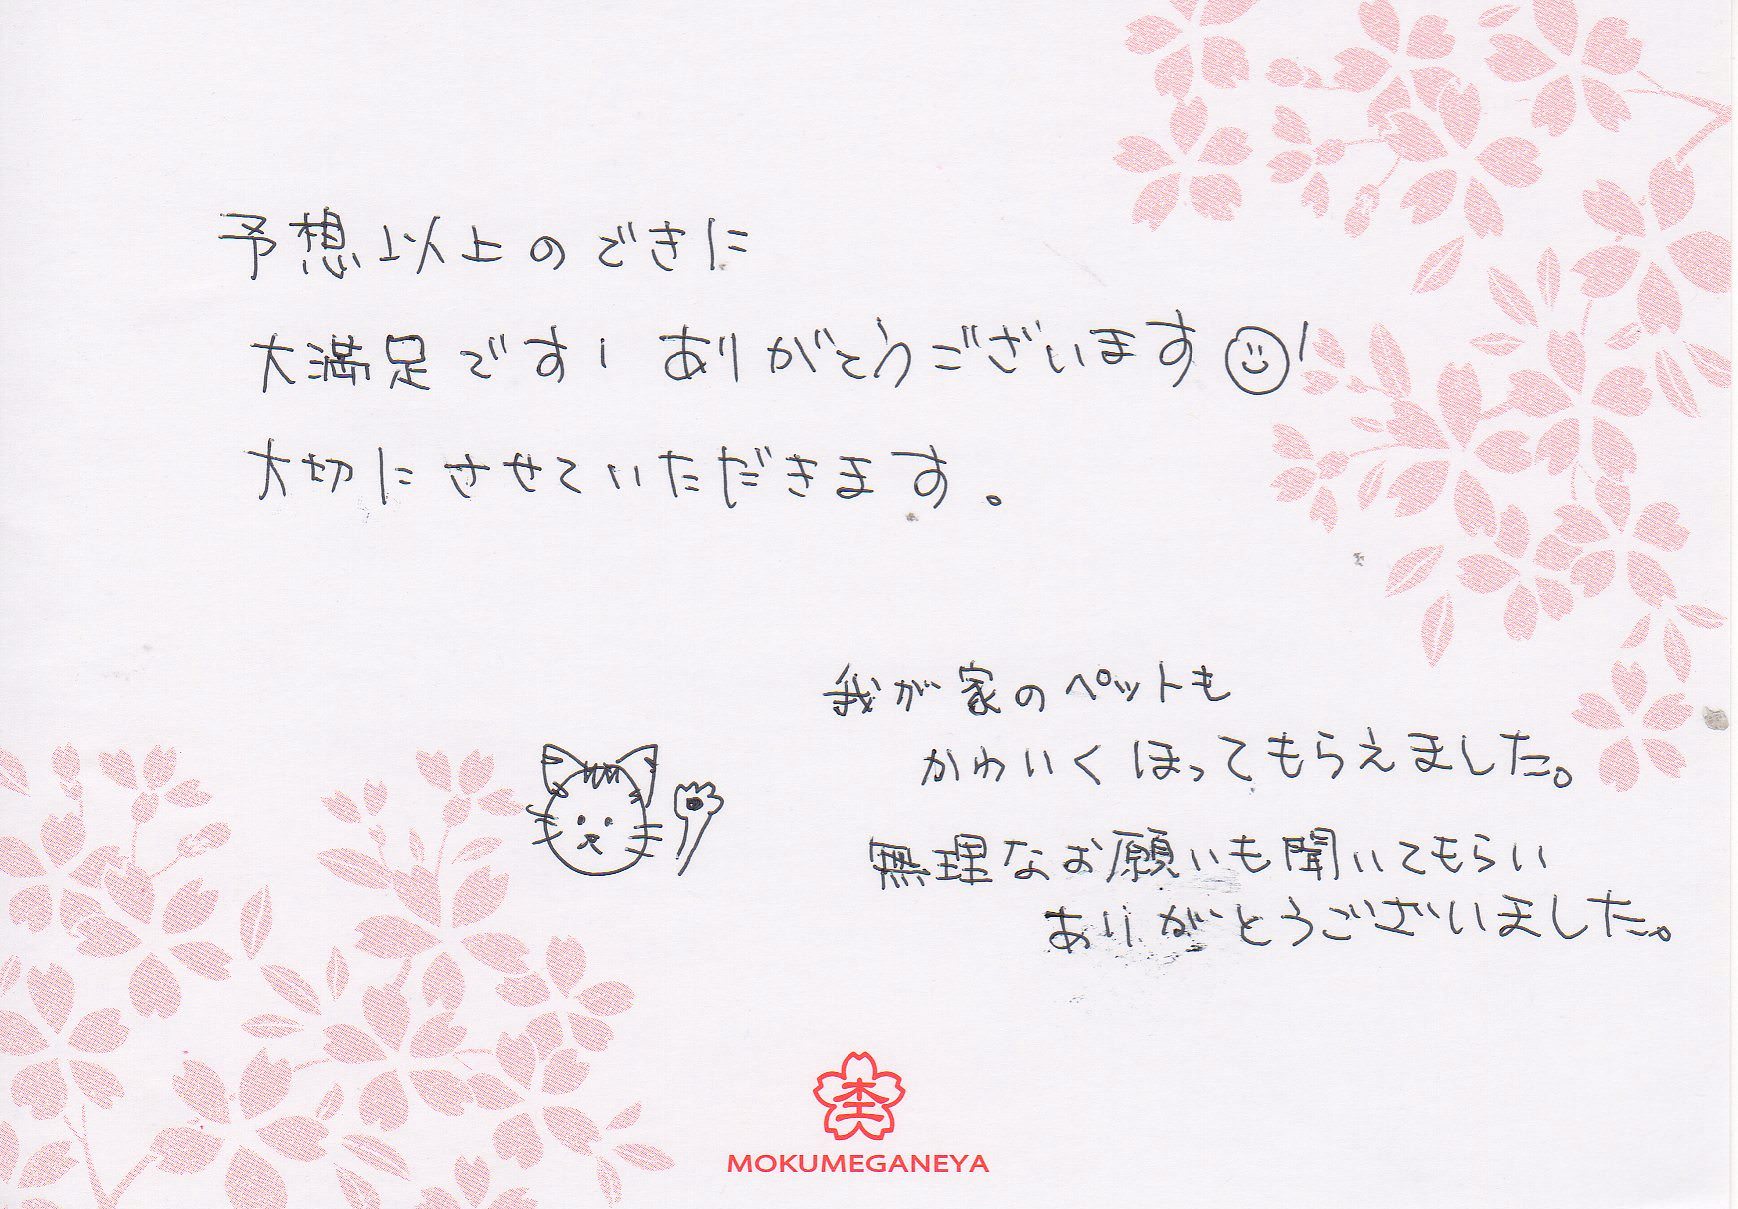 予想以上のできに
大満足です! ありがとうございます☺!
大切にさせていただきます。
我が家のペットも
かわいくほってもらえました。
無理なお願いも聞いてもらい
ありがとうございました。
杢
MOKUMEGANEYA